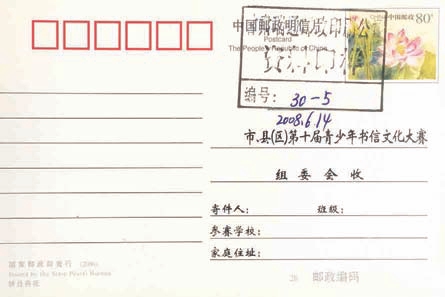 中国邮政明信片
Postcard
The People's Republic of China
中国邮政 80分
编号: 30-5
2008.6.14
市、县(区)第十届青少年书信文化大赛
组委会收
寄件人: 班级:
参赛学校:
家庭住址:
国家邮政局发行 (2006)
Issued by the State Postal Bureau
邮政编码